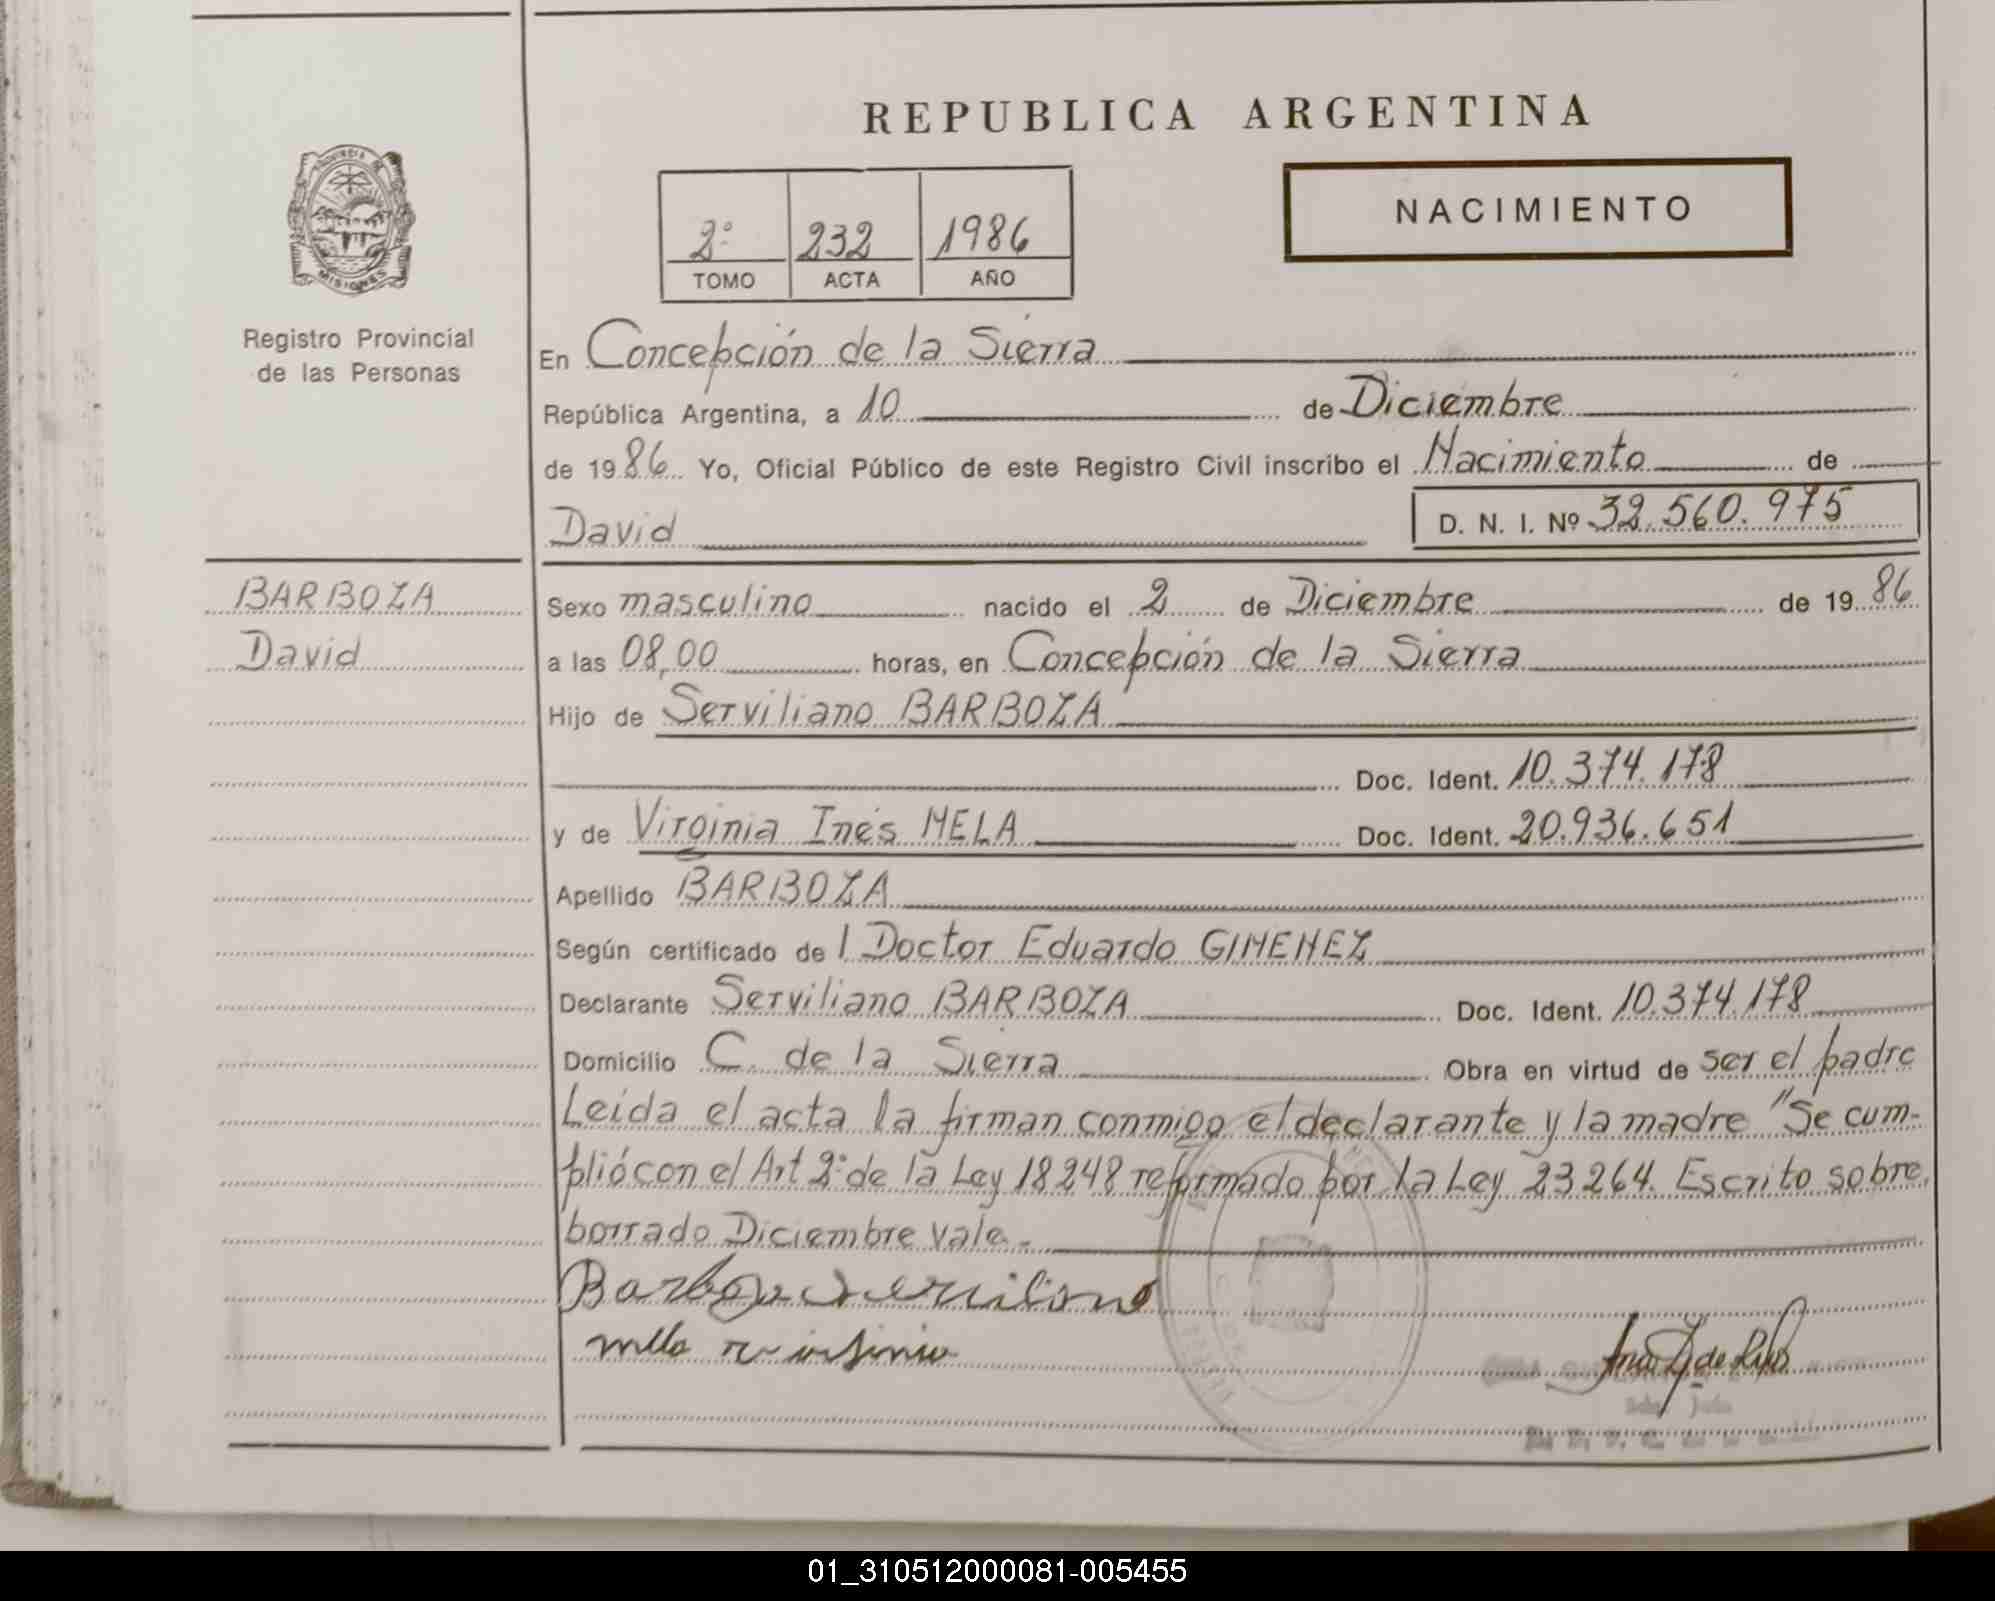 REPUBLICA ARGENTINA
PROVINCIA DE
MISIONES
Registro Provincial
de las Personas
2º 232 1986
TOMO ACTA AÑO
NACIMIENTO
En Concepción de la Sierra
República Argentina, a 10 de Diciembre
de 1986 Yo, Oficial Público de este Registro Civil inscribo el Nacimiento de
David D. N. I. Nº 32.560.975
BARBOZA
David
Sexo masculino nacido el 2 de Diciembre de 1986
a las 08,00 horas, en Concepción de la Sierra
Hijo de Serviliano BARBOZA
Doc. Ident. 10.374.178
y de Virginia Inés MELA Doc. Ident. 20.936.651
Apellido BARBOZA
Según certificado de l Doctor Eduardo GIMENEZ
Declarante Serviliano BARBOZA Doc. Ident. 10.374.178
Domicilio C. de la Sierra Obra en virtud de ser el padre
Leída el acta la firman conmigo el declarante y la madre "Se cum-
plió con el Art 2º de la Ley 18248 reformado por la Ley 23264. Escrito sobre
borrado Diciembre vale.-
Barboza Serviliano
01_310512000081-005455